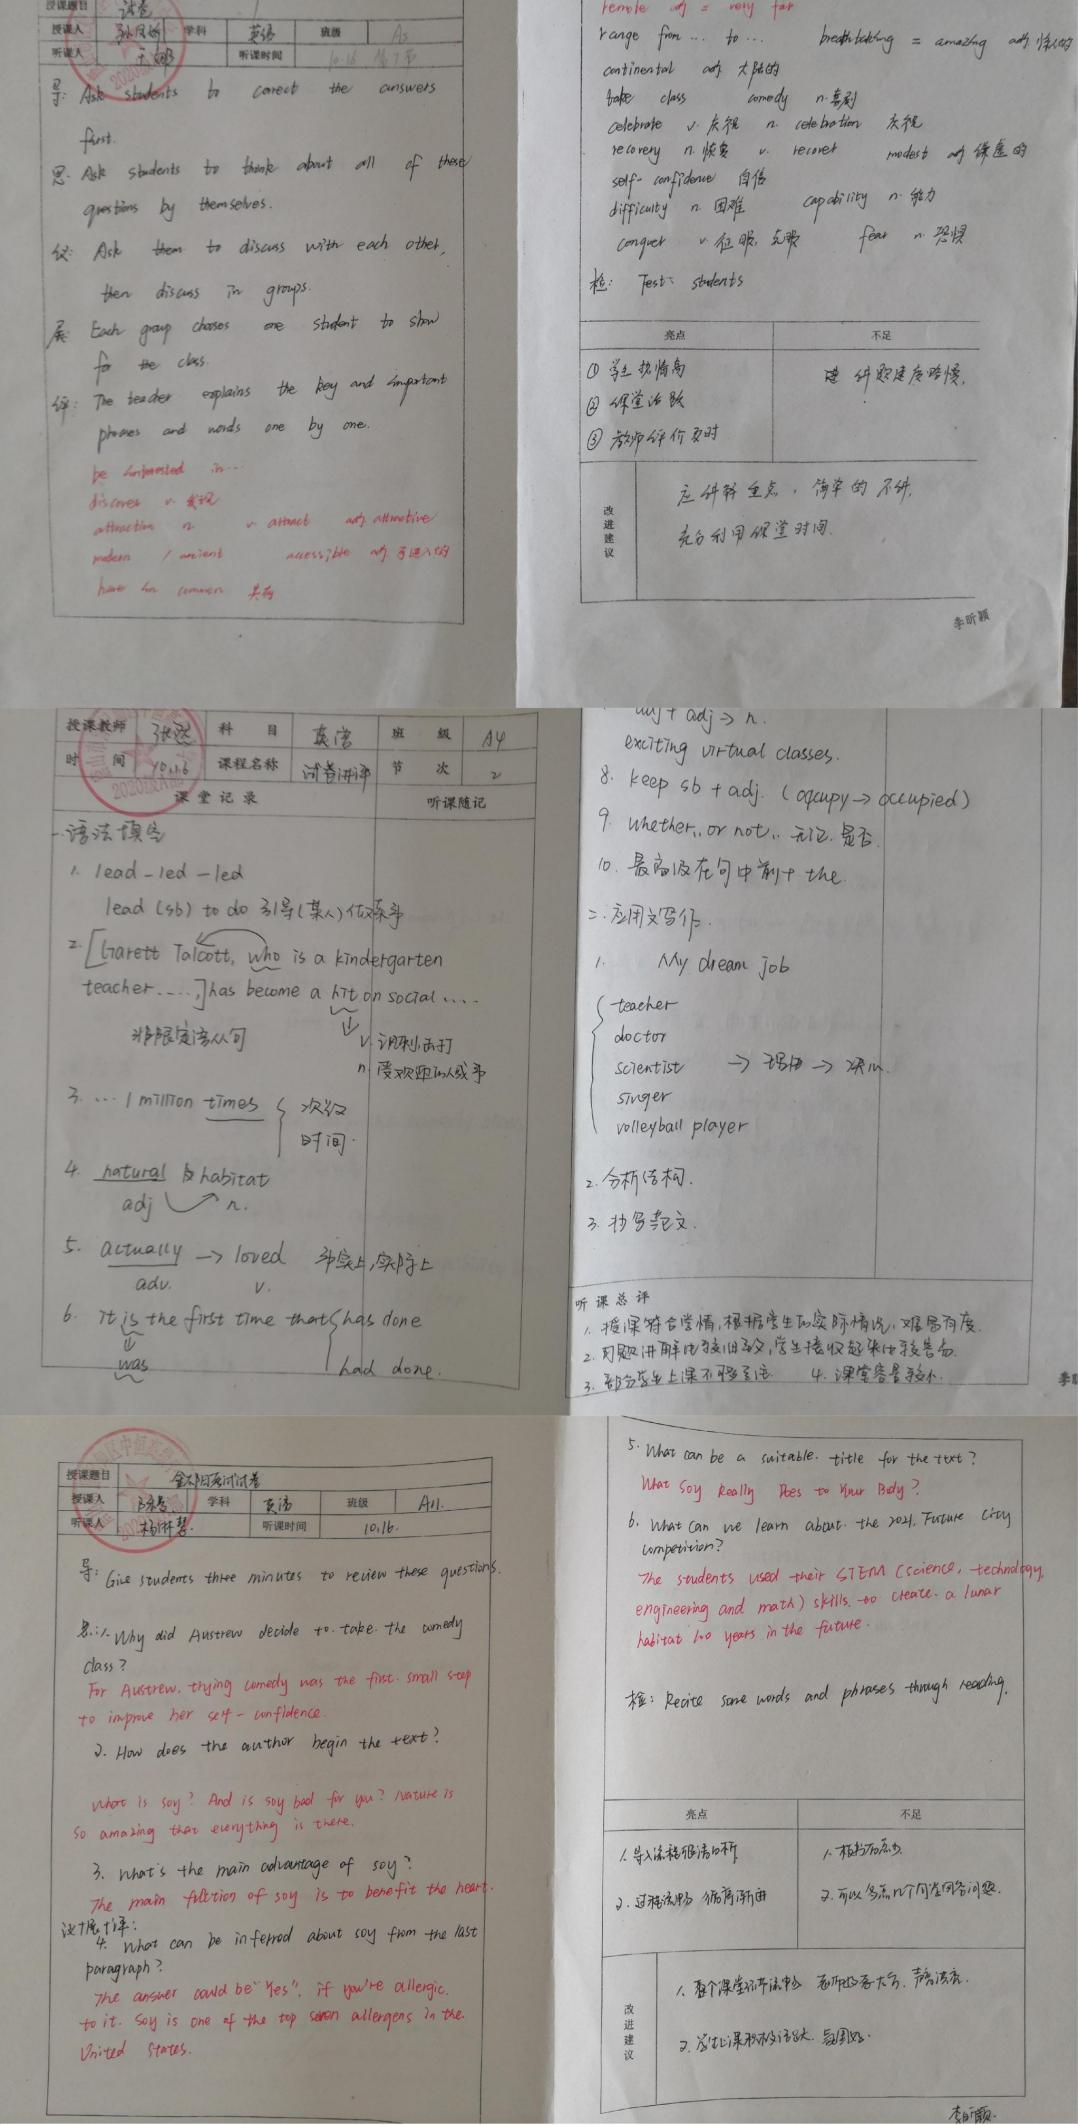 授课题目 试卷
授课人 学科 英语 班级
听课人 听课时间 10.16
导: Ask students to correct the answers
first.
思: Ask students to think about all of these
questions by themselves.
议: Ask them to discuss with each other,
then discuss in groups.
展: Each group chooses one student to show
for the class.
评: The teacher explains the key and important
phrases and words one by one.
be interested in…
discover v. 发现
attraction n. v. attract adj. attractive
modern / ancient accessible adj. 可进入的
have in common 共有
remote adj = very far
range from … to … breathtaking = amazing adj. 惊人的
continental adj. 大陆的
take class comedy n. 喜剧
celebrate v. 庆祝 n. celebration 庆祝
recovery n. 恢复 v. recover modest adj. 谦虚的
self-confidence 自信
difficulty n. 困难 capability n. 能力
conquer v. 征服, 克服 fear n. 恐惧
检: Test students
亮点 不足
① 学生热情高 讲题速度略慢.
② 课堂活跃
③ 教师评价及时
改进建议
应讲解重点, 简单的不讲,
充分利用课堂时间.
李昕颖
授课教师 科目 英语 班级 A4
时间 10.16 课程名称 试卷讲评 节次 2
课堂记录 听课随记
一. 语法填空
1. lead-led-led
lead (sb) to do 引导(某人)做某事
2. [Garett Talcott, who is a kindergarten
teacher.....,] has become a hit on social ....
非限定语从句 v. 讽刺;击打
n. 受欢迎的人或事
3. ... 1 million times { 次数
时间.
4. natural 修 habitat
adj n.
5. actually → loved 事实上,实际上
adv. v.
6. it is the first time that { has done
was had done.
adj + adj → n.
exciting virtual classes.
8. keep sb + adj. (occupy → occupied)
9. whether.. or not.. 无论.是否.
10. 最高级在句中前+ the.
二. 应用文写作.
1. My dream job
teacher
doctor
scientist → 理由 → 决心.
singer
volleyball player
2. 分析结构.
3. 抄写范文.
听课总评
1. 授课符合学情,根据学生的实际情况,难易有度.
2. 问题讲解比较细致,学生接收起来比较容易.
3. 部分学生上课不够专注. 4. 课堂容量较小.
授课题目 金太阳考试试卷
授课人 学科 英语 班级 A11.
听课人 杨琳慧. 听课时间 10.16.
导: Give students three minutes to review these questions.
思: 1. Why did Austrew decide to take the comedy
class?
For Austrew, trying comedy was the first small step
to improve her self-confidence.
2. How does the author begin the text?
What is soy? And is soy bad for you? Nature is
so amazing that everything is there.
3. What's the main advantage of soy?
The main function of soy is to benefit the heart.
议+展+评:
4. What can be inferred about soy from the last
paragraph?
The answer could be "Yes", if you're allergic
to it. Soy is one of the top seven allergens in the
United States.
5. What can be a suitable title for the text?
What Soy Really Does to Your Body?
6. What can we learn about the 2021 Future City
Competition?
The students used their STEM (science, technology,
engineering and math) skills to create a lunar
habitat 100 years in the future.
检: Recite some words and phrases through reading.
亮点 不足
1. 导入流程很清晰 1. 板书有点少.
2. 过程流畅 循序渐进 2. 可以多点几个同学回答问题.
改进建议
1. 整个课堂环节流畅 老师落落大方, 声音洪亮.
2. 学生上课积极活跃, 氛围好.
李昕颖.